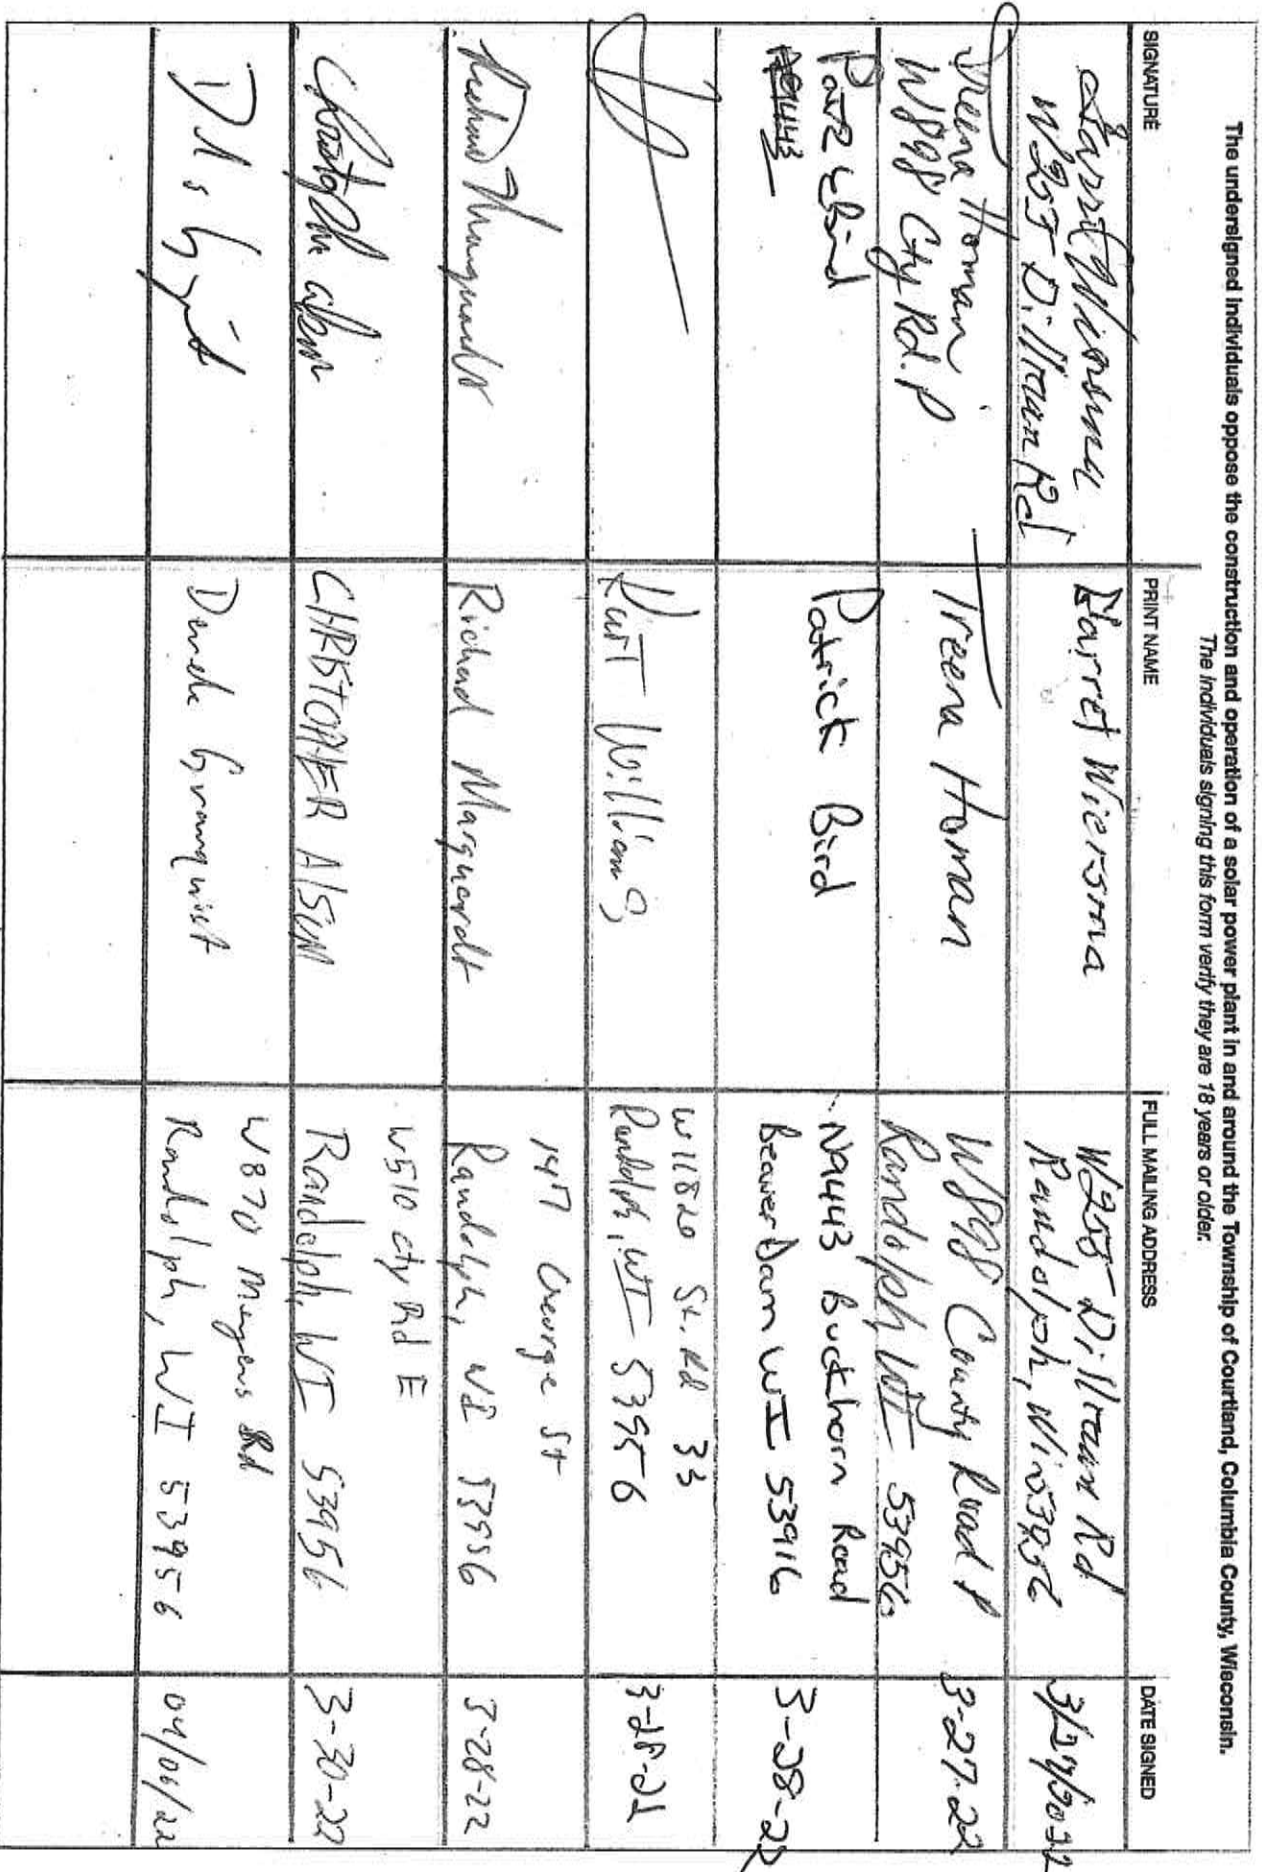 The undersigned individuals oppose the construction and operation of a solar power plant in and around the Township of Courtland, Columbia County, Wisconsin.
The individuals signing this form verify they are 18 years or older.
SIGNATURE PRINT NAME FULL MAILING ADDRESS DATE SIGNED
Harret Wiersma
W255 Dillman Rd
Harret Wiersma
W255 Dillman Rd
Randolph, Wi 53956
3/27/2022
Treena Homan
W898 Cty Rd. P
Treena Homan
W898 County Road P
Randolph WI 53956
3-27-22
Bird
N9443
Patrick Bird
N9443 Buckhorn Road
Beaver Dam WI 53916
3-28-22
Kurt Williams
W11820 St. Rd 33
Randolph, WI 53956
3-28-22
Richard Marquardt
Richard Marquardt
147 George St
Randolph, WI 53956
3-28-22
Christopher Alsum
CHRISTOPHER Alsum
W510 cty Rd E
Randolph, WI 53956
3-30-22
Granquist
W870 Rd
Randolph, WI 53956
04/06/22